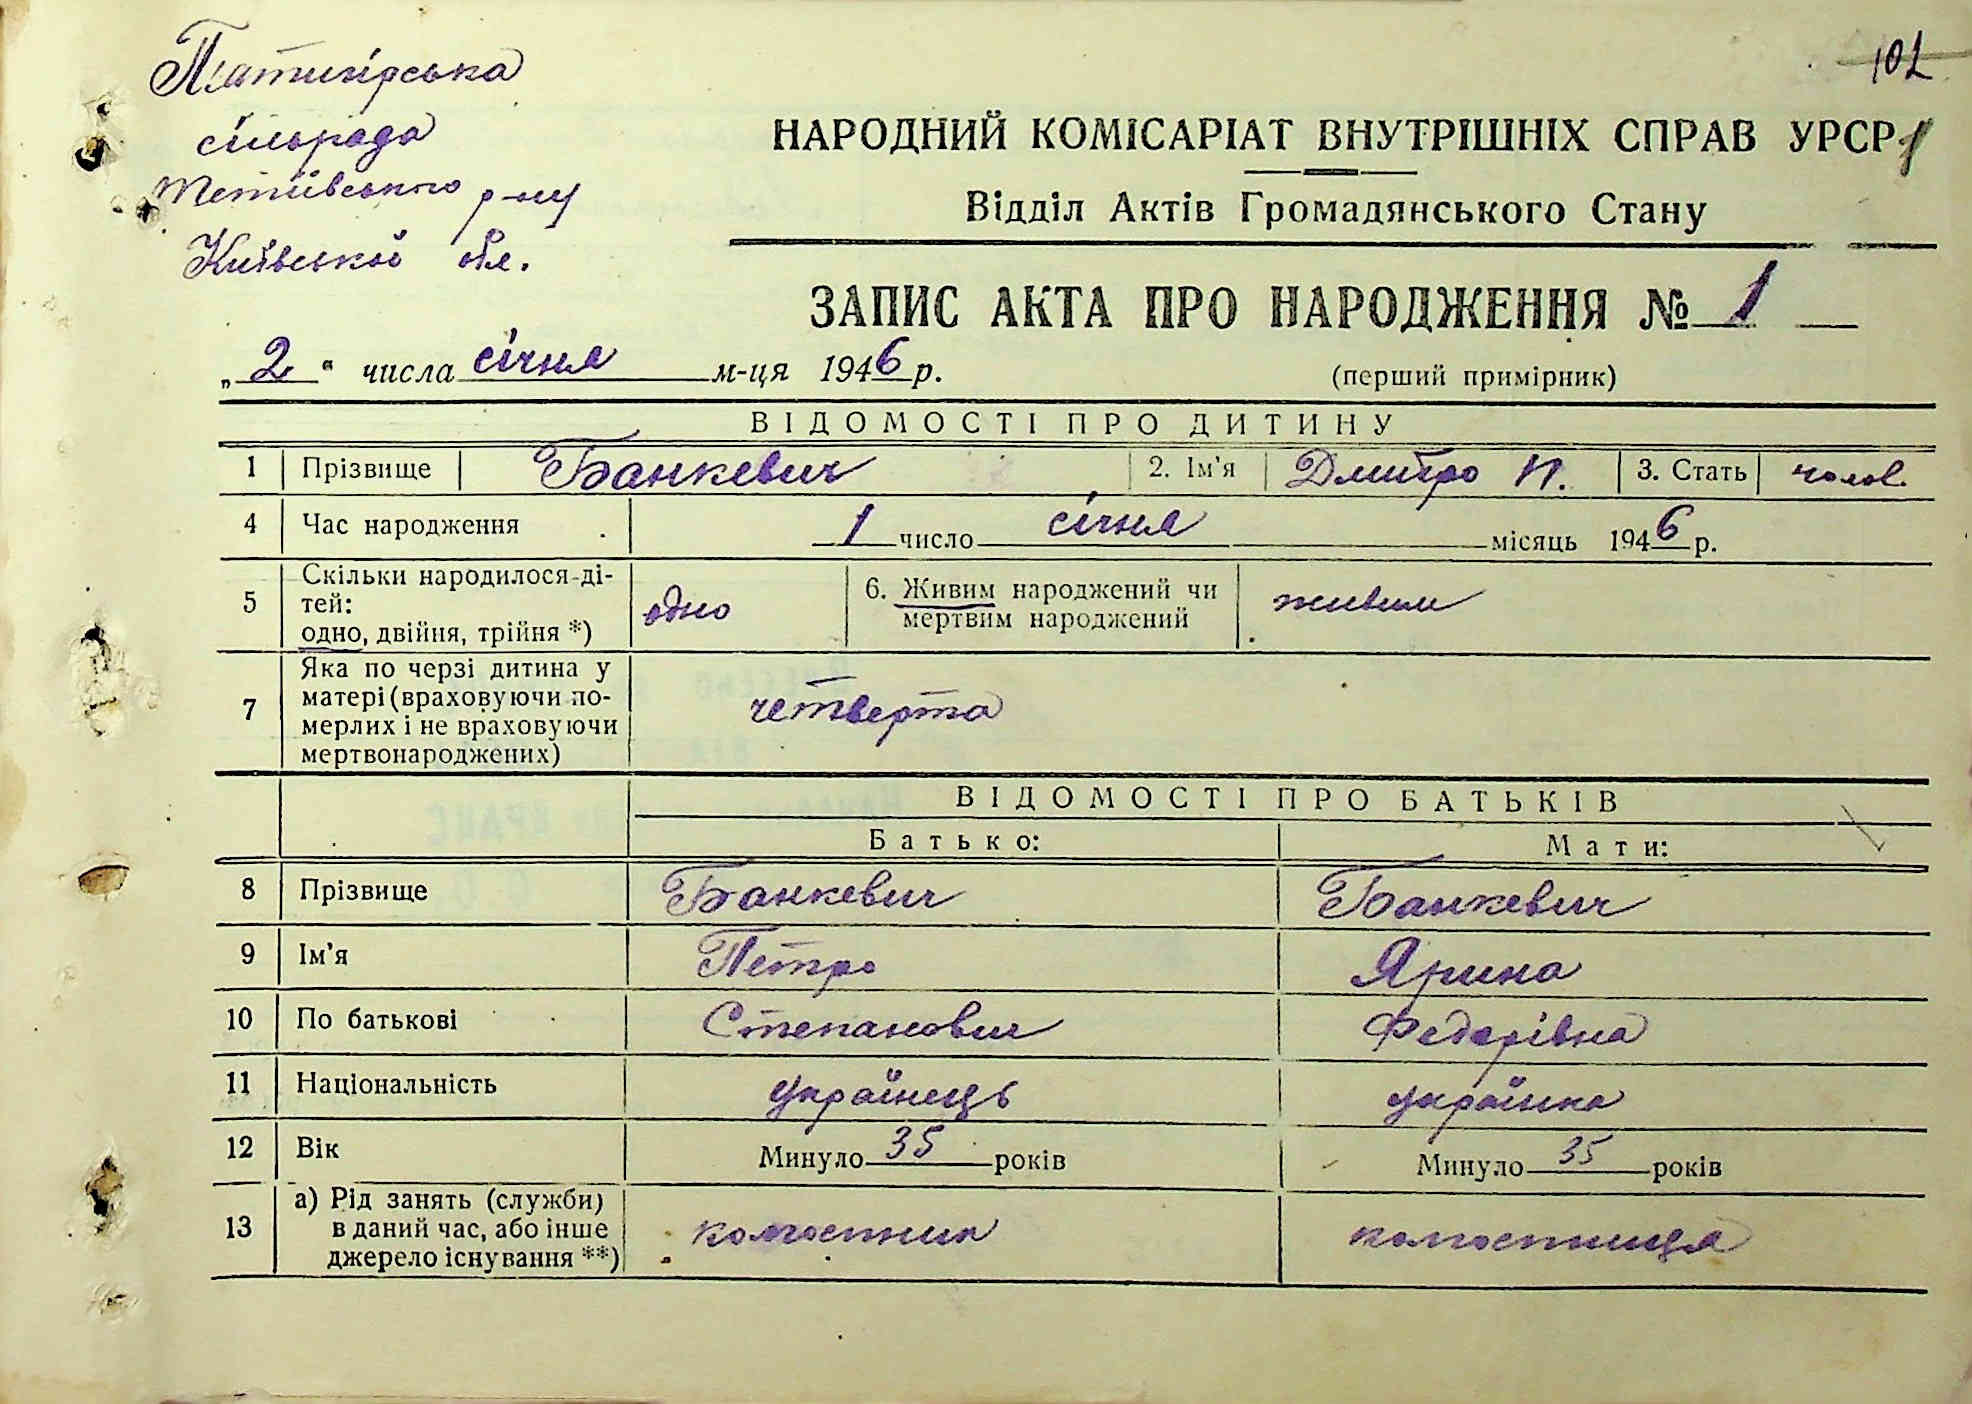 Пʼятигірська
сільрада
Тетіївського р-ну
Київської обл.
102
НАРОДНИЙ КОМІСАРІАТ ВНУТРІШНІХ СПРАВ УРСР
1
Відділ Актів Громадянського Стану
ЗАПИС АКТА ПРО НАРОДЖЕННЯ № 1
„2“ числа січня м-ця 1946 р.
(перший примірник)
ВІДОМОСТІ ПРО ДИТИНУ
1 Прізвище Банкевич 2. Ім'я Дмитро П. 3. Стать чолов.
4 Час народження 1 число січня місяць 1946 р.
5 Скільки народилося ді-
тей:
одно, двійня, трійня *)
одно
6. Живим народжений чи
мертвим народжений
живим
7 Яка по черзі дитина у
матері (враховуючи по-
мерлих і не враховуючи
мертвонароджених)
четверта
ВІДОМОСТІ ПРО БАТЬКІВ
Батько: Мати:
8 Прізвище Банкевич Банкевич
9 Ім'я Петро Ярина
10 По батькові Степанович Федорівна
11 Національність українець українка
12 Вік Минуло 35 років Минуло 35 років
13 а) Рід занять (служби)
в даний час, або інше
джерело існування **)
колгоспник колгоспниця